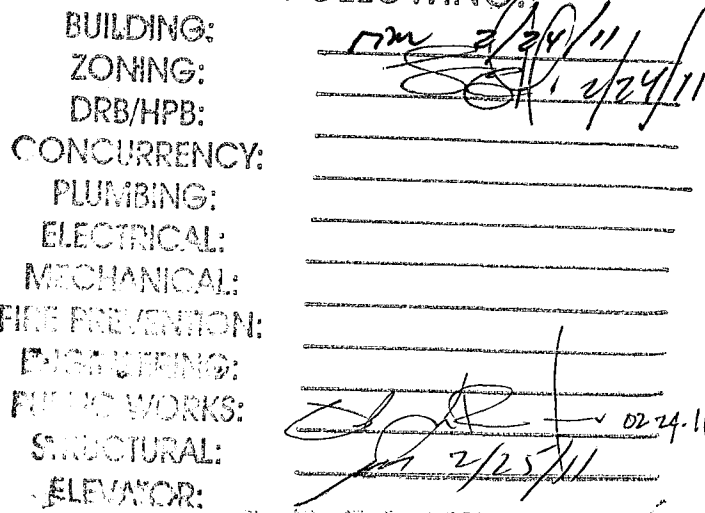 FOLLOWING:
BUILDING: 2/24/11
ZONING: 2/24/11
DRB/HPB:
CONCURRENCY:
PLUMBING:
ELECTRICAL:
MECHANICAL:
FIRE PREVENTION:
ENGINEERING:
PUBLIC WORKS: 02-24-11
STRUCTURAL: 2/25/11
ELEVATOR: